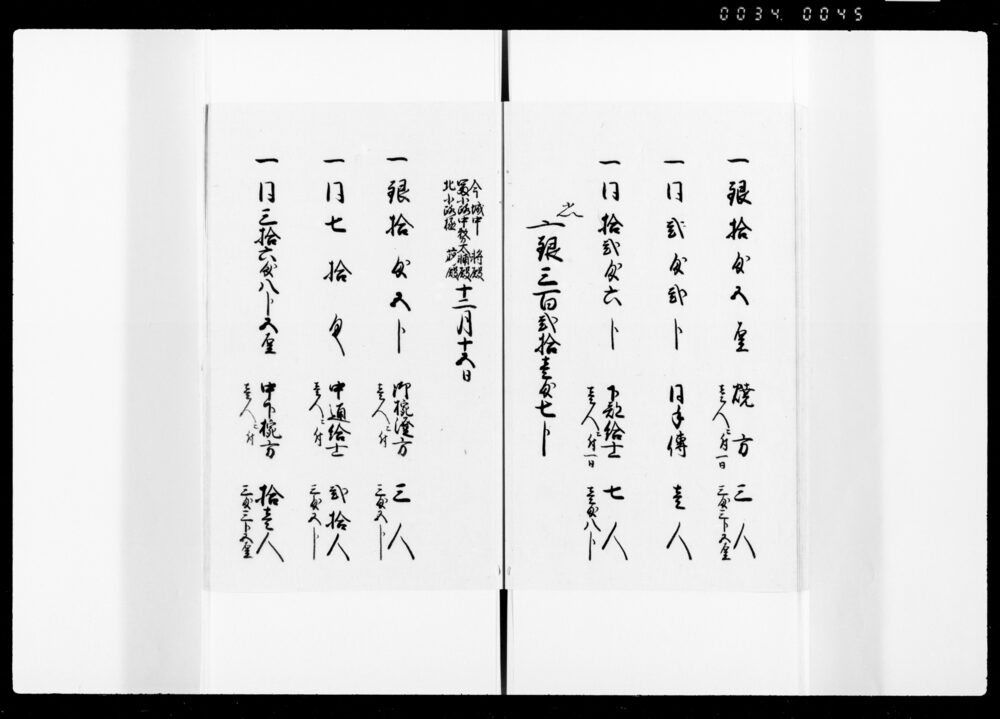 0034 0045
一銀拾匁五厘 焼方 三人
壱人ニ付一日 三匁三分五厘
一同弐匁弐分 同手傳 壱人
一同拾弐匁六分 下部給士 七人
壱人ニ付一日 壱匁八分
〆銀三百弐拾壱匁七分
今城中将殿
冨小路中務大輔殿 十二月十五日
北小路極﨟殿
一銀拾匁五分 御椀渡方 三人
壱人ニ付 三匁五分
一同七拾匁 中通給士 弐拾人
壱人ニ付 三匁五分
一同三拾六匁八分五厘 中下椀方 拾壱人
壱人ニ付 三匁三分五厘